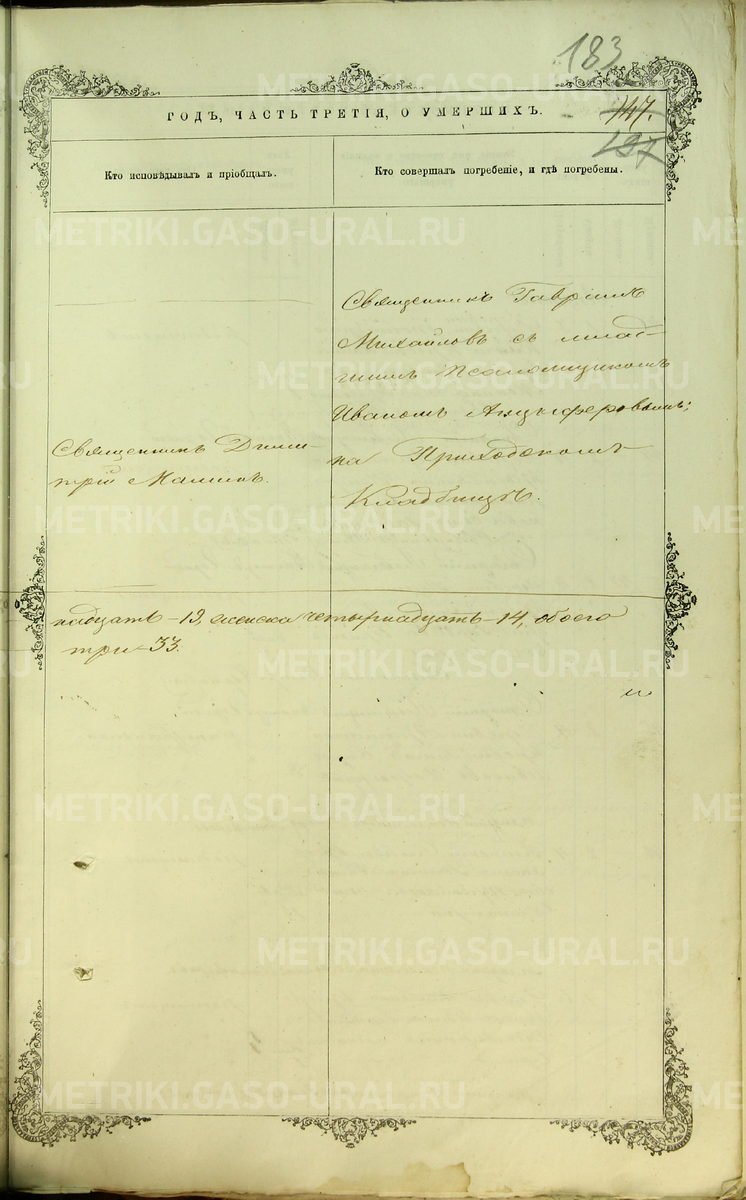 183
147.
197
ГОДЪ, ЧАСТЬ ТРЕТІЯ, О УМЕРШИХЪ.
Кто исповѣдывалъ и пріобщалъ.
Кто совершалъ погребеніе, и гдѣ погребены.
Священникъ Дими-
трій Малинъ.
Священникъ Гавріилъ
Михайловъ съ млад-
шимъ Псаломщикомъ
Иваномъ Анциферовымъ;
на Приходскомъ
Кладбищѣ.
надцать-19, женска четырнадцать-14, обоего
три-33.
METRIKI.GASO-URAL.RU